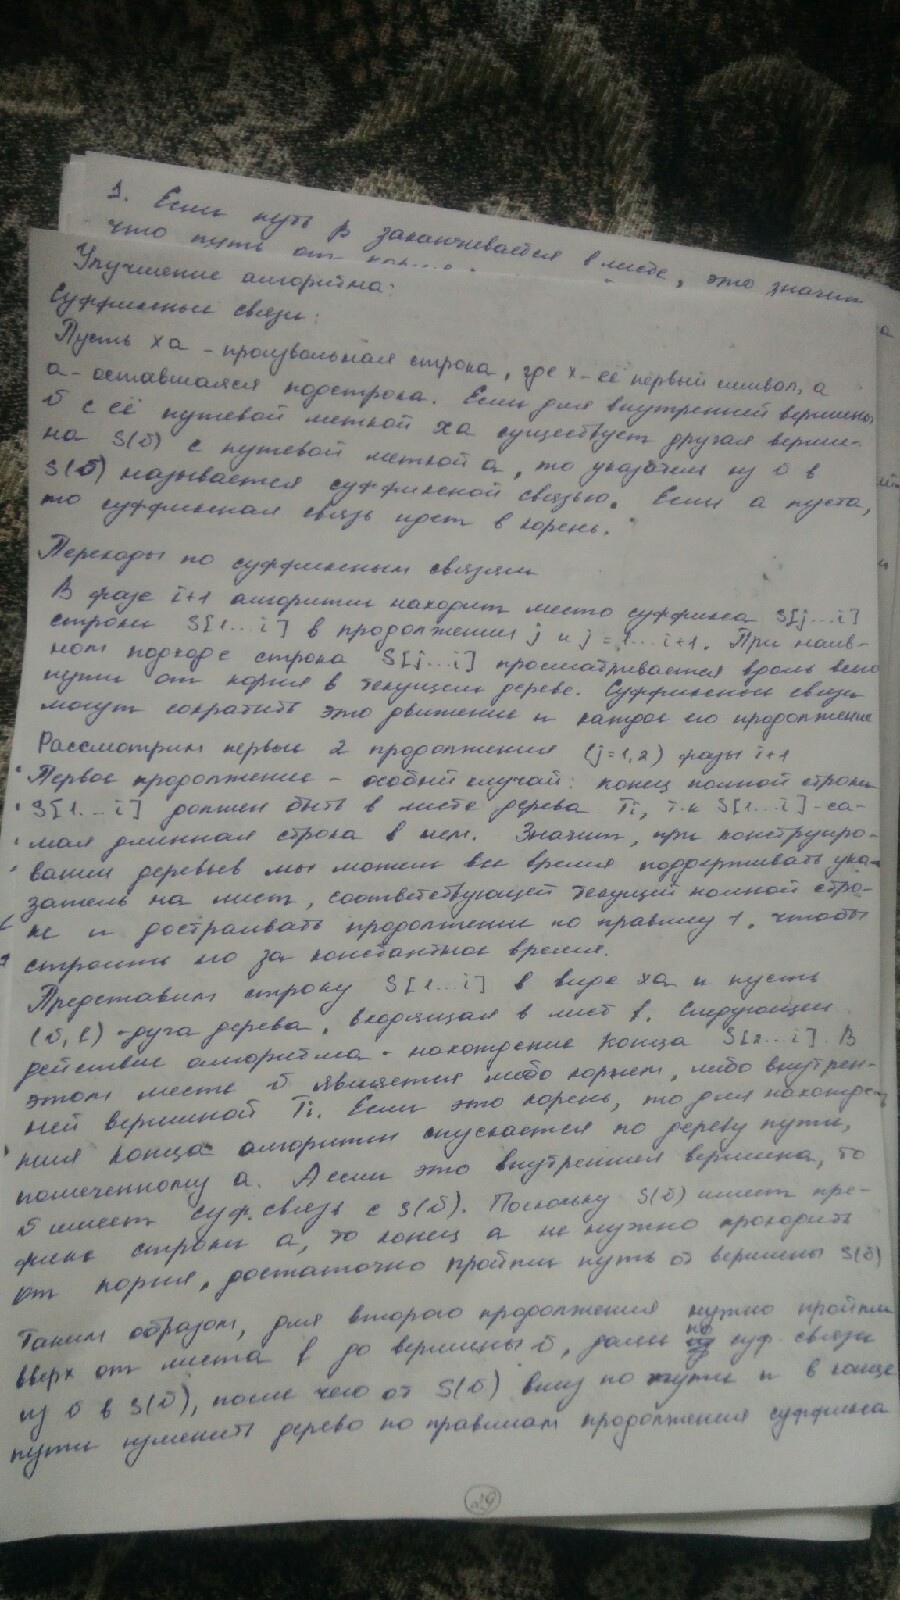 1. Если путь β заканчивается в листе, это значит
что путь от
Улучшение алгоритма:
Суффиксные связи:
Пусть xa - произвольная строка, где x - её первый символ, а
a - оставшаяся подстрока. Если для внутренней вершины
υ с её путевой меткой xa существует другая верши-
на S(υ) с путевой меткой a, то указатель из υ в
S(υ) называется суффиксной связью. Если a пуста,
то суффиксная связь идет в корень.
Переходы по суффиксным связям
В фазе i+1 алгоритм находит место суффикса S[j...i]
строки S[1...i] в продолжении j и j=1...i+1. При наив-
ном подходе строка S[j...i] просматривается вдоль всего
пути от корня в текущем дереве. Суффиксные связи
могут сократить это движение и каждое его продолжение
Рассмотрим первые 2 продолжения (j=1,2) фазы i+1
Первое продолжение - особый случай: конец полной строки
S[1...i] должен быть в листе дерева Ti, т.к S[1...i] - са-
мая длинная строка в нем. Значит, при конструиро-
вании деревьев мы можем все время поддерживать ука-
затель на лист, соответствующей текущей полной стро-
ке и достраивать продолжение по правилу 1, чтобы
строить его за константное время.
Представим строку S[1...i] в виде xa и пусть
(υ, l) - дуга дерева, входящая в лист l. Следующее
действие алгоритма - нахождение конца S[2...i]. В
этом месте υ является либо корнем, либо внутрен-
ней вершиной Ti. Если это корень, то для нахожде-
ния конца алгоритм спускается по дереву пути,
помеченному a. А если это внутренняя вершина, то
υ имеет суф. связь с S(υ). Поскольку S(υ) имеет пре-
фикс строки a, то конец a не нужно проходить
от корня, достаточно пройти путь от вершины S(υ)
Таким образом, для второго продолжения нужно пройти
вверх от листа l до вершины υ, далее по суф. связи
из υ в S(υ), после чего от S(υ) вниз по пути и в конце
пути изменить дерево по правилам продолжения суффикса
29